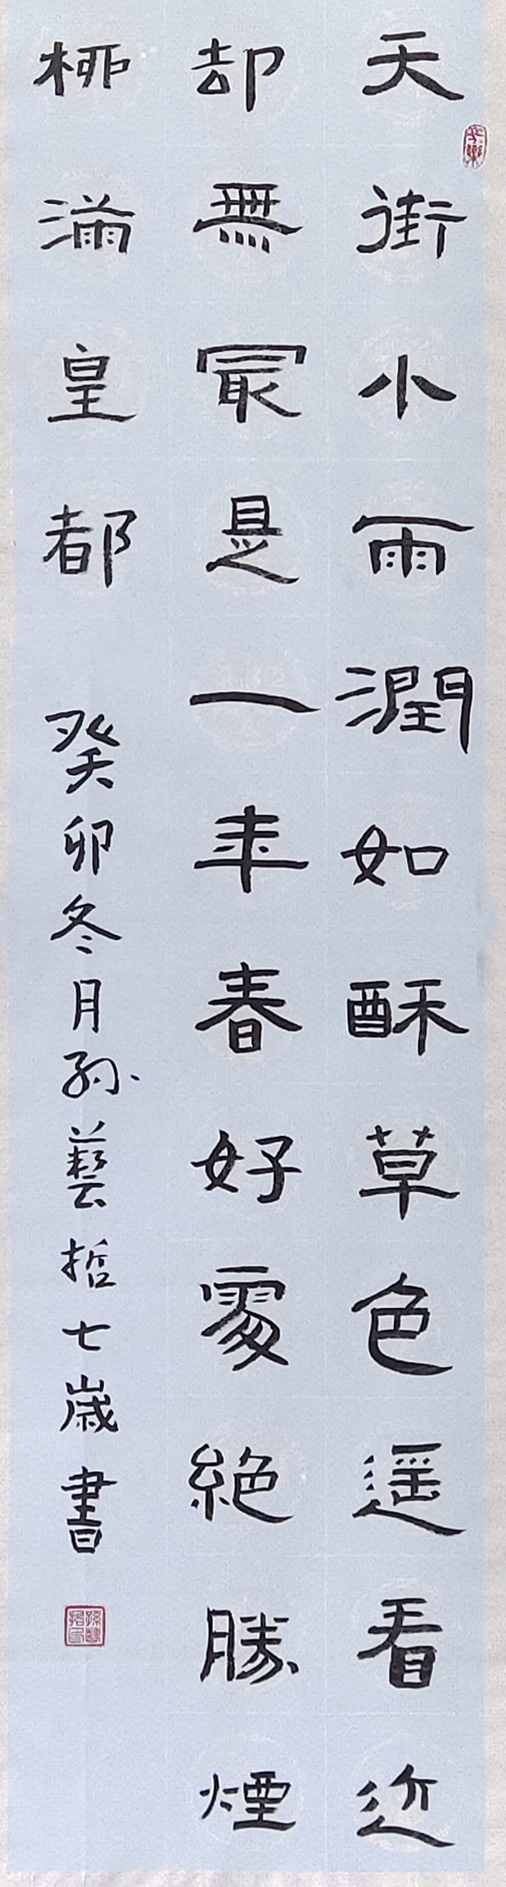 天街小雨潤如酥草色遥看近
却無冣是一年春好處絕勝煙
柳滿皇都
癸卯冬月孫藝哲七歲書